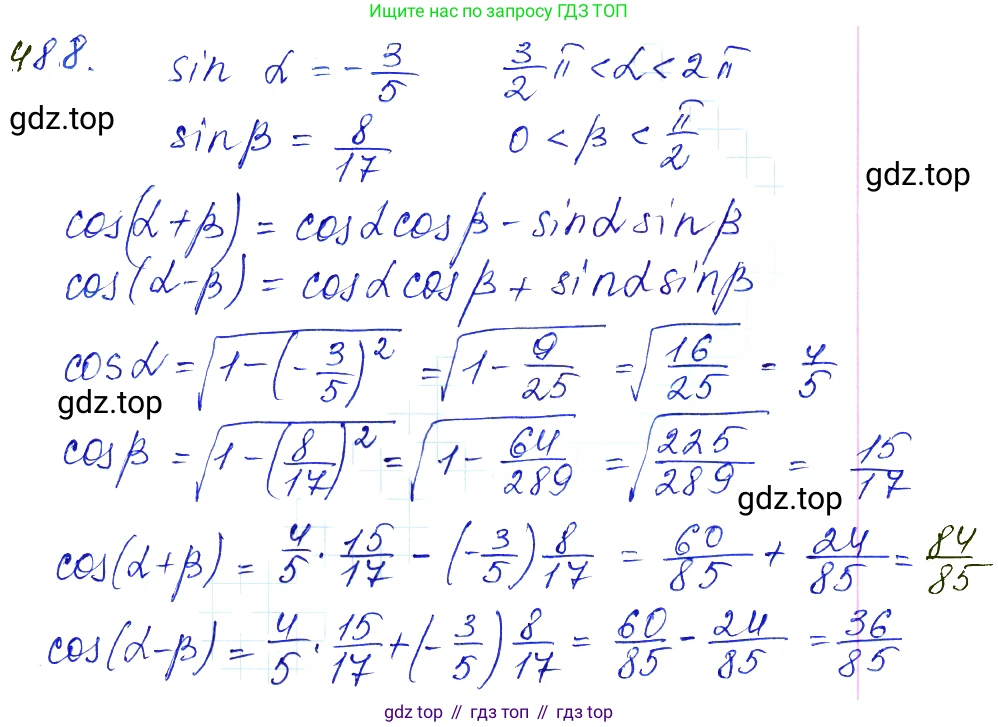 Ищите нас по запросу ГДЗ ТОП
48.8. sin α = -3/5 3/2 π < α < 2π
gdz.top
sin β = 8/17 0 < β < π/2
gdz.top
cos(α+β) = cosα cosβ - sinα sinβ
cos(α-β) = cosα cosβ + sinα sinβ
cosα = √(1-(-3/5)²) = √(1-9/25) = √(16/25) = 4/5
gdz.top
cosβ = √(1-(8/17)²) = √(1-64/289) = √(225/289) = 15/17
gdz.top
cos(α+β) = 4/5 · 15/17 - (-3/5) 8/17 = 60/85 + 24/85 = 84/85
cos(α-β) = 4/5 · 15/17 + (-3/5) 8/17 = 60/85 - 24/85 = 36/85
gdz.top // гдз топ // gdz.top